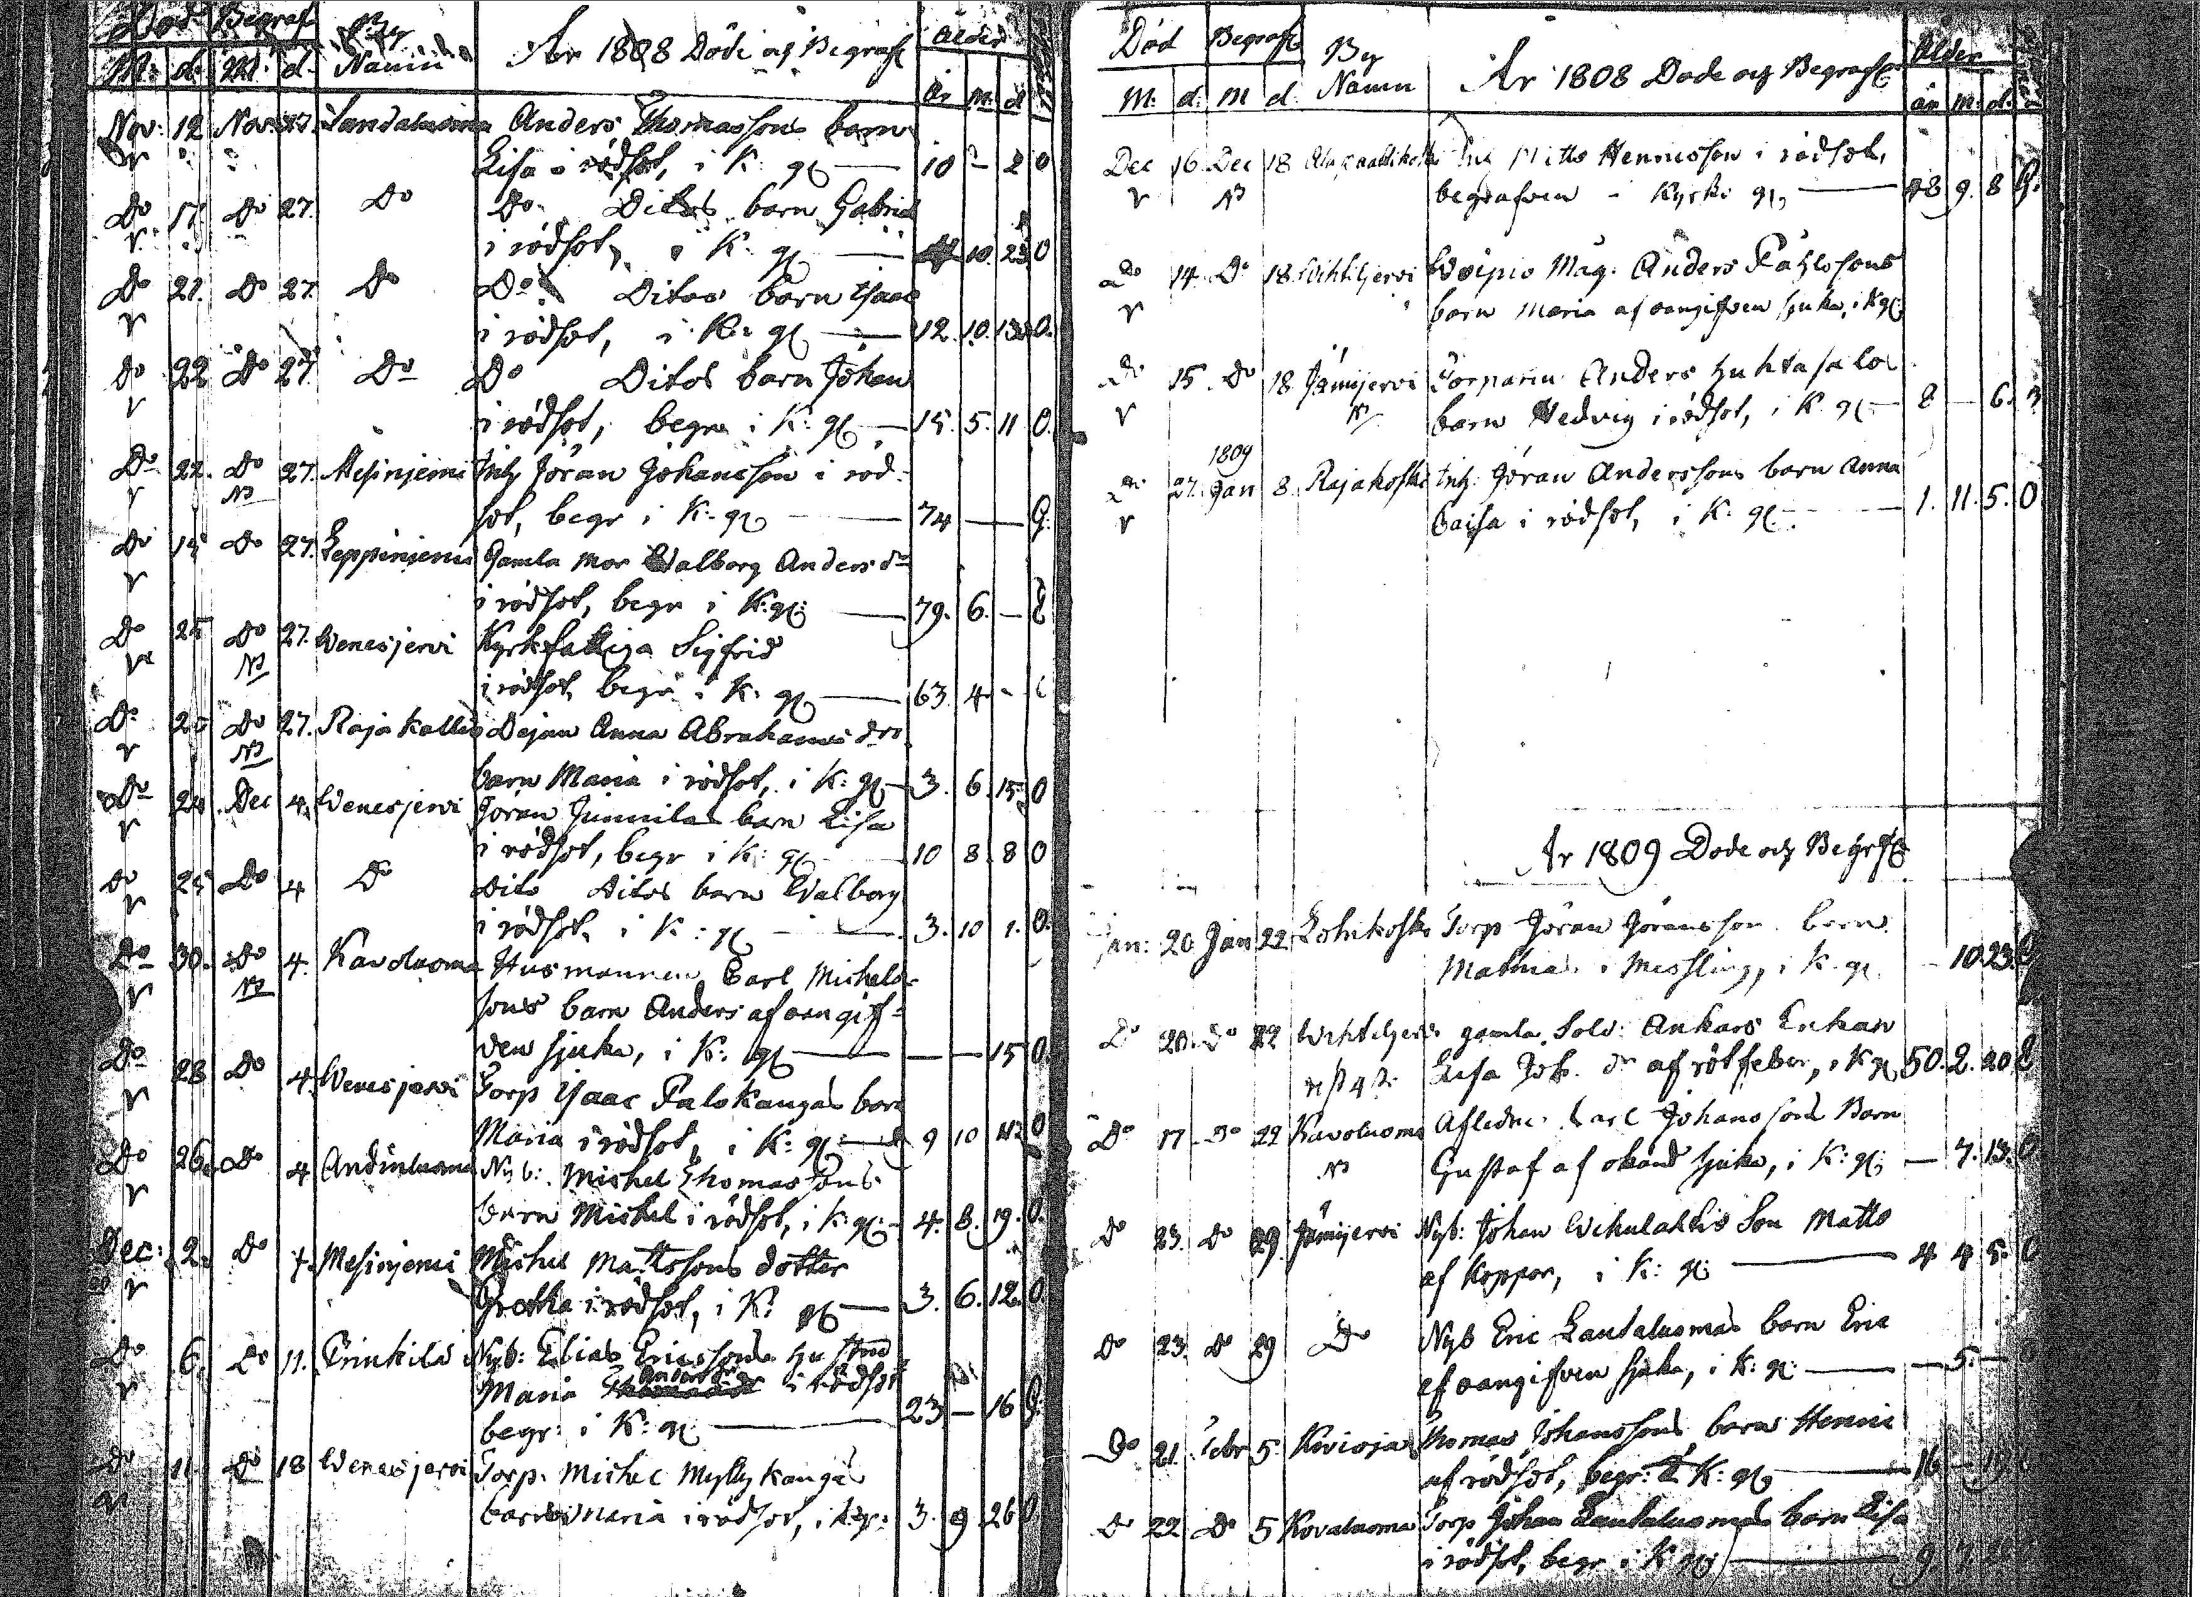 Död Begraf By Ålder
M: d. M. d. Namn År 1808 Döde och Begrafne år m: d
Nov: 12 Nov: 27. Anders Thomassons barn
Lisa i rödsot, i K: g — 10 – 2 O
Do 17. Do 27. Do Do Ditos barn Gabriel
i rödsot, i K: g — 10. 23 O
Do 21. Do 27. Do Do Ditos barn Isaac
i rödsot, i K: g — 12. 10. O.
Do 22 Do 27. Do Do Ditos barn Johan
i rödsot, begr i K: g — 15. 5. 11 O.
Do 22. Do 27. Mesinjemi Inh Jöran Johansson i röd-
sot, begr i K: g — 74 — G.
Do 15 Do 27. Leppinjemi Gamla mor Walborg Anders dr
i rödsot, begr i K: g: — 79. 6. —
Do 25 Do 27. Wenesjervi Kyrkfattiga Sigfrid
i rödsot begr i K: g — 63 4 -
Do Do 27. Rajakallio Dejan Anna Abrahams dr
barn Maria i rödsot, i K: g — 3. 6. 15 O
Do 24 Dec 4. Wenesjervi Jöran Junnilas barn Lisa
i rödsot, begr i K: g — 10 8 8 O
Do 25 Do 4 Do Dito Ditos barn Walborg
i rödsot, i K: g — 3. 10 1. O.
Do 30. Do 4. Kavoluoma Husmannen Carl Michels-
sons barn Anders af oangif-
ven sjuka, i K: g — — — 15 O
Do 28 Do 4. Wenesjervi Torp Isaac Palokangas barn
Maria i rödsot, i K: g: — 9 10 O
Do 26. Do 4 Andinluoma Nyb: Michel Thomassons
barn Michel i rödsot, i K: g: - 4. 8. 19. O.
Dec: 2. Do 4. Mesinjemi Michel Mattssons dotter
Gretha i rödsot, i K: g — 3. 6. 12. O
Do 6. Do 11. Nyb: Elias Ericssons hustru
Maria i rödsot
begr: i K: g — 23 — 16 G.
Do 11. Do 18 Wenesjervi Torp. Michel Myllykangas
barn Maria i rödsot, i K: g: 3. 9. 26 O
Död Begraf By Ålder
M: d: M d: Namn År 1808 Döde och Begrafne år m: d.
Dec 16 Dec 18 Inh Matts Hennesson i rödsot,
begrafven i Kyrko g. — 48 9. 8 G.
Do 14 Do 18 Wihtiljervi Anders Påhlssons
barn Maria af oangifven sjuka, i K g.
Do 15. Do 18 Jämijervi Torparen Anders Huhtasalos
barn Hedvig i rödsot, i K. g. — 8 — 6.
1809
Do 27. Jan 8 Rajakoski Inh: Jöran Anderssons barn Anna
Caisa i rödsot, i K. g. — 1. 11. 5. O
År 1809 Döde och Begrafne
Jan: 20 Jan 22 Torp Jöran Jöransson barn
Mathias i Messling, i K. g. – 10 23.
Do 20. Do 22 Wihtiljervi gamla Sold: Ankars Enkan
Lisa Joh. dr af rötfeber, i K g, 50. 2. 20
Do 17 Do 22 Kavoluoma Afledne Carl Johanssons Barn
Gustaf af okänd sjuka, i K: g: — 7. 13. O
Do 23. Do 29. Jämijervi Nyb: Johan Wihulahtis Son Matts
af Koppor, i K: g: — 4 4 5
Do 23. Do 29 Do Nyb Eric Lautaluomas barn Eric
af oangifven sjuka, i K: g: — — 5. —
Do 21. Febr 5. Kovioja Thomas Johanssons barn Henric
af rödsot, begr: i K: g, — 16 — 19.
Do 22 Do 5 Kovaluoma Torp Johan Lautaluomas barn Lisa
i rödsot, begr i K g — 9. 7